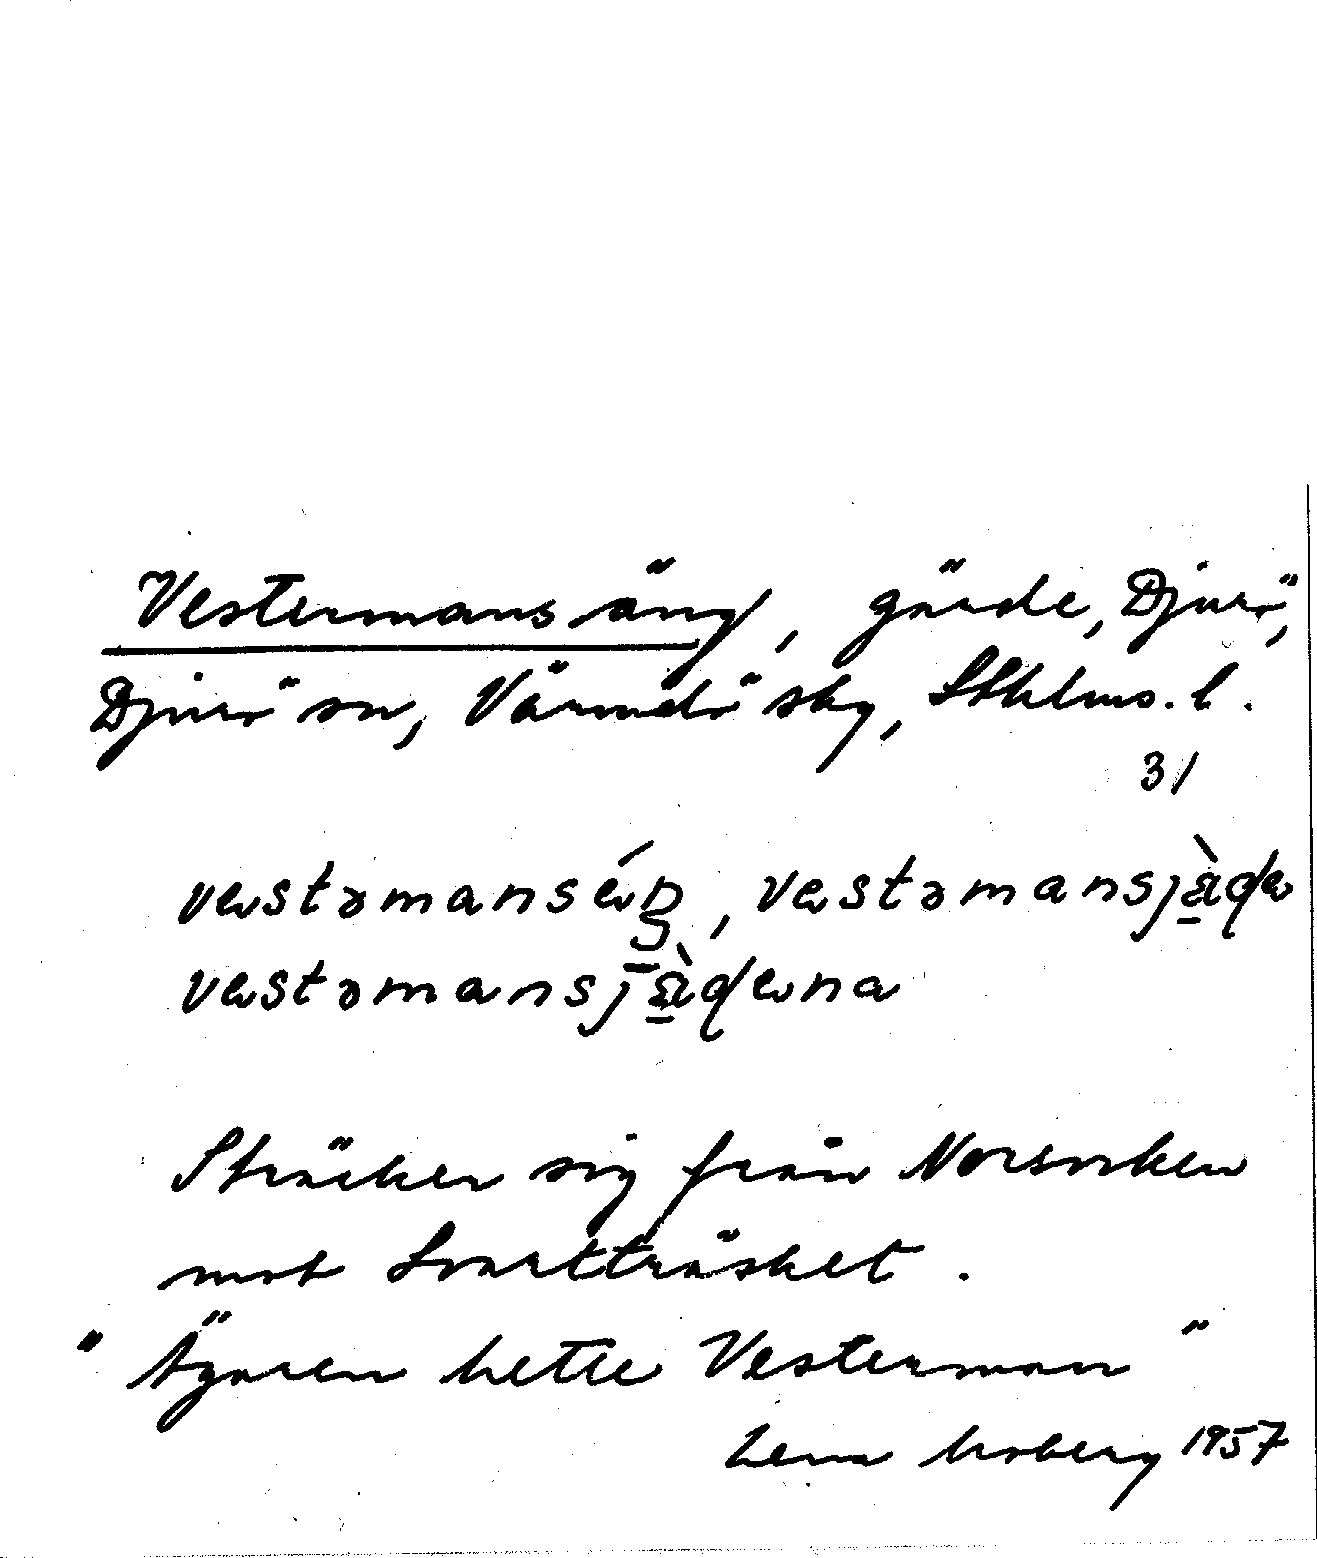 Vestermans äng, gärde, Djurö,
Djurö sn, Värmdö sky, Sthlms. l.
31
vestəmanséŋ, vestəmansjæ̀ɖe
vestəmansjæ̀ɖena
Sträcker sig från Norsviken
mot Svartträsket.
"Ägaren hette Vesterman"
Lena Moberg 1957